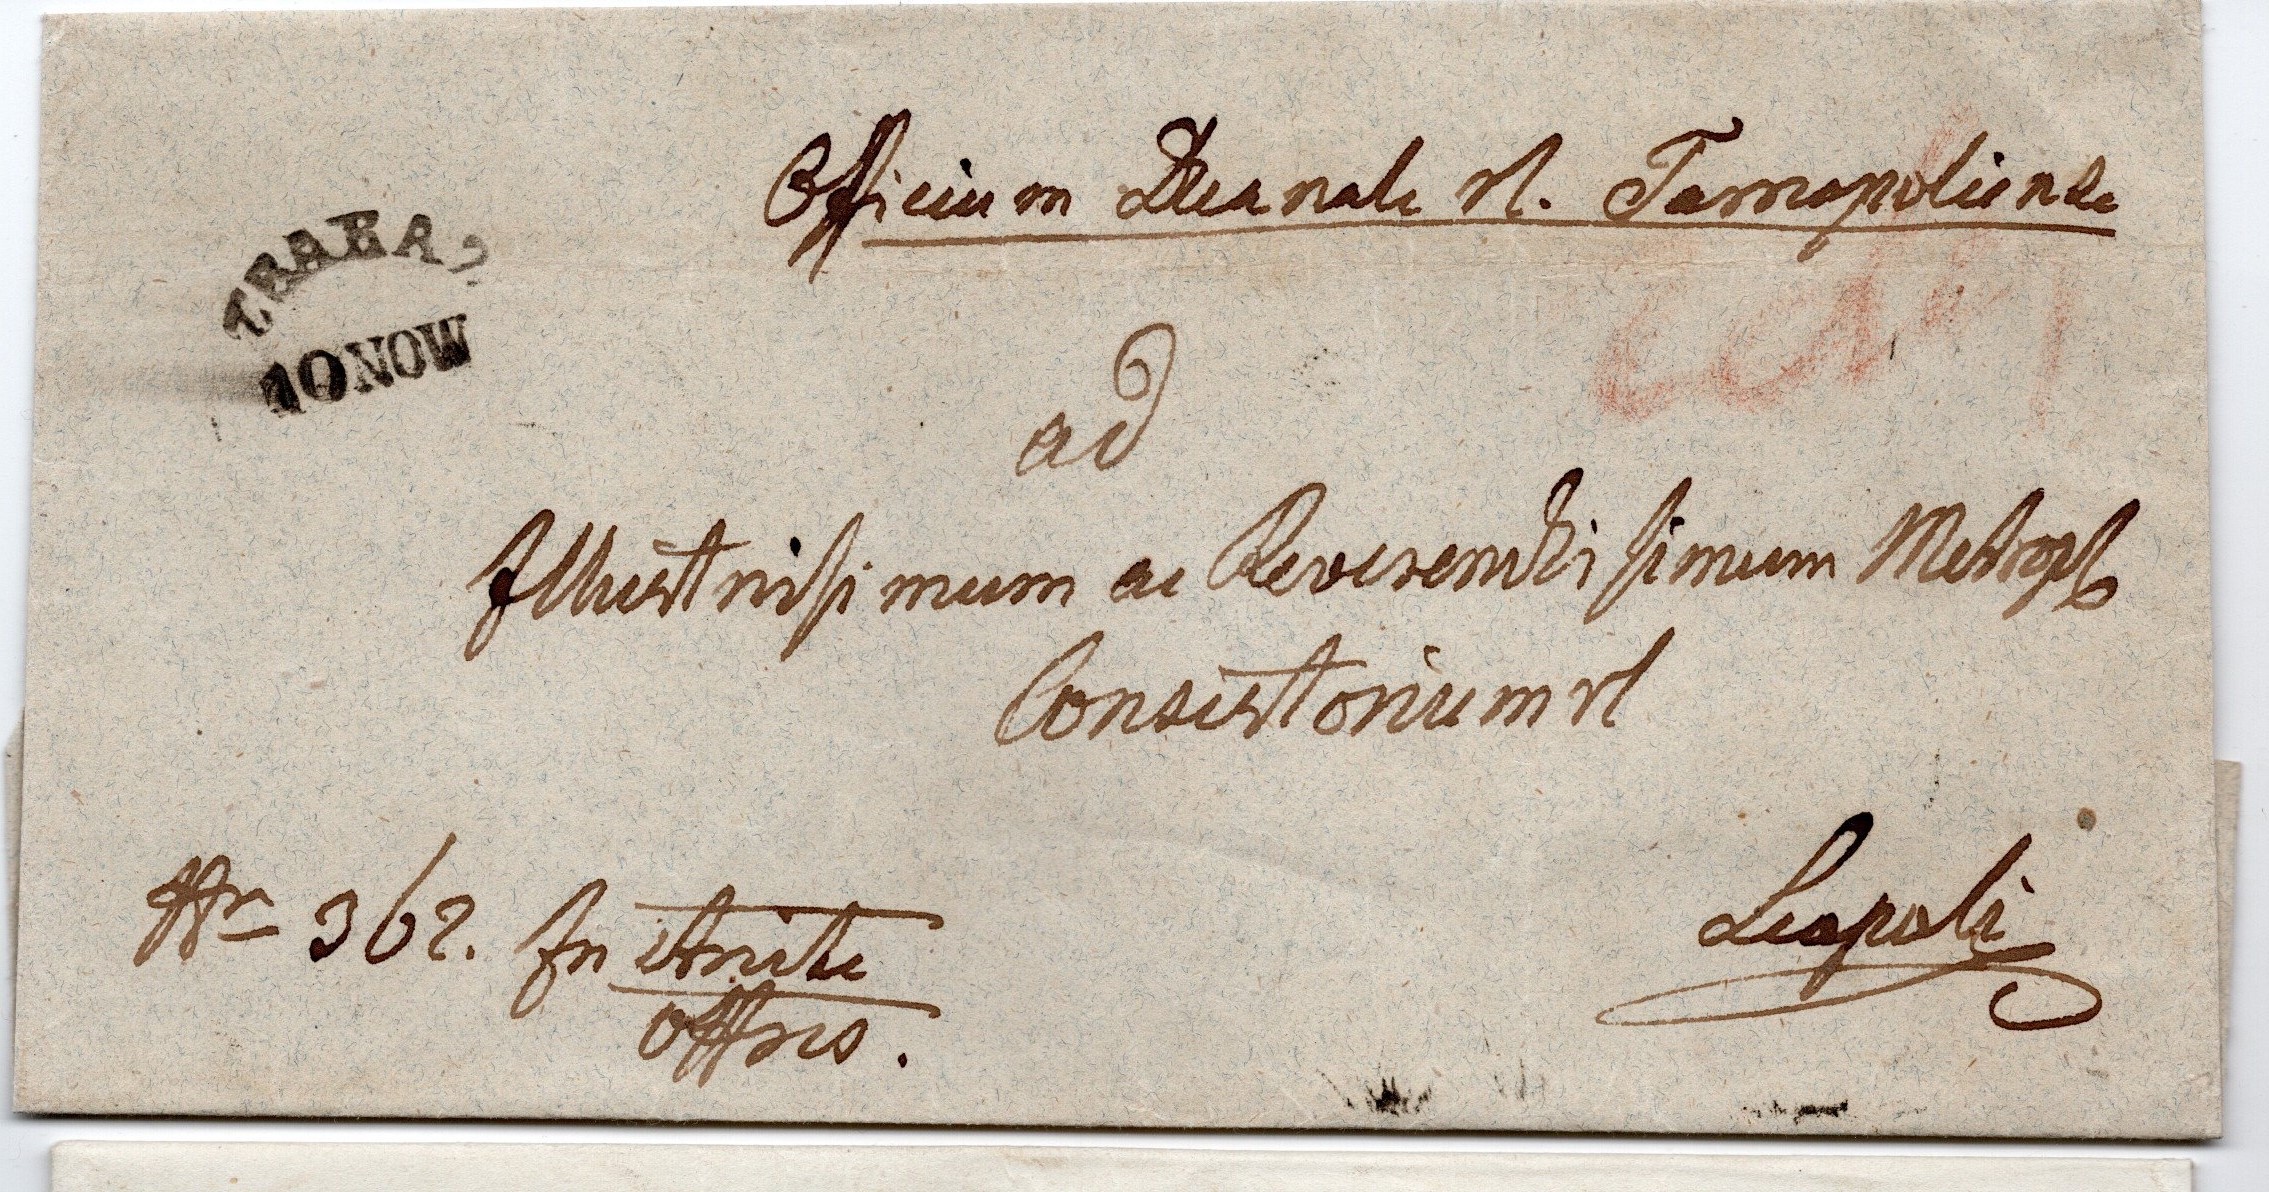 Officium Decanale rl. Tarnopoliense
TRABA
10 NOW
ad
Illustrissimum ac Reverendissimum Metropl
Consistorium rl
Leopoli
Nr 362. In stricte
offsis.